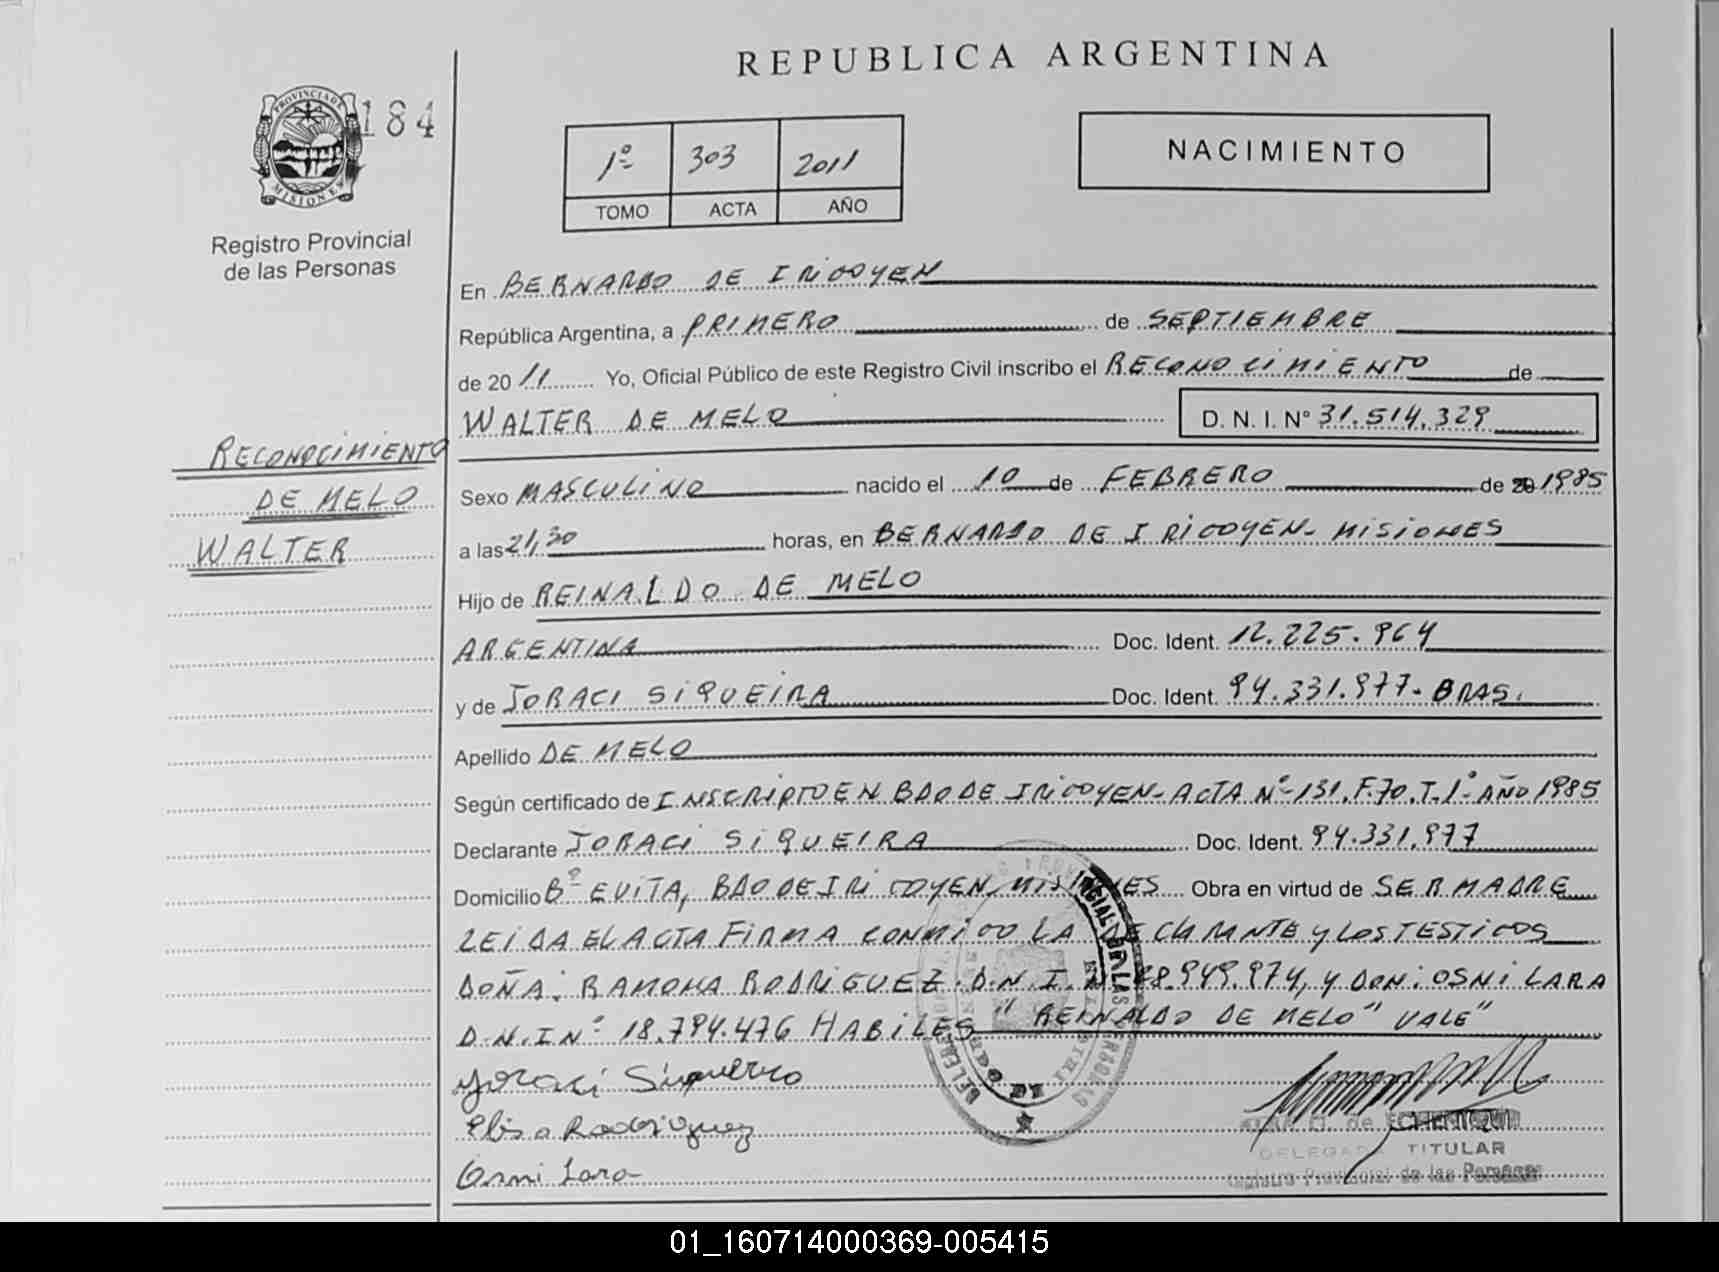 REPUBLICA ARGENTINA
PROVINCIA DE
MISIONES
184
Registro Provincial
de las Personas
1º 303 2011
TOMO ACTA AÑO
NACIMIENTO
En BERNARDO DE IRIGOYEN
República Argentina, a PRIMERO de SEPTIEMBRE
de 2011 Yo, Oficial Público de este Registro Civil inscribo el RECONOCIMIENTO de
WALTER DE MELO D. N. I. Nº 31.514.329
RECONOCIMIENTO
DE MELO
WALTER
Sexo MASCULINO nacido el 10 de FEBRERO de 1985
a las 21,30 horas, en BERNARDO DE IRIGOYEN - MISIONES
Hijo de REINALDO DE MELO
ARGENTINA Doc. Ident. 12.225.964
y de JORACI SIQUEIRA Doc. Ident. 94.331.977- BRAS.
Apellido DE MELO
Según certificado de INSCRIPTO EN BDO DE IRIGOYEN - ACTA Nº 131. F.70. T.1º AÑO 1985
Declarante JORACI SIQUEIRA Doc. Ident. 94.331.977
Domicilio Bº EVITA, BDO DE IRIGOYEN, MISIONES Obra en virtud de SER MADRE
LEIDA EL ACTA FIRMA CONMIGO LA DECLARANTE y LOS TESTIGOS
DOÑA: RAMONA RODRIGUEZ. D.N.I. Nº 18.949.974, y DON: OSNI LARA
D.N.I Nº 18.794.476 HABILES "REINALDO DE MELO" VALE"
Joraci Siqueira
Rodriguez
Osni Lara
DELEGADA TITULAR
Registro Provincial de las Personas
01_160714000369-005415